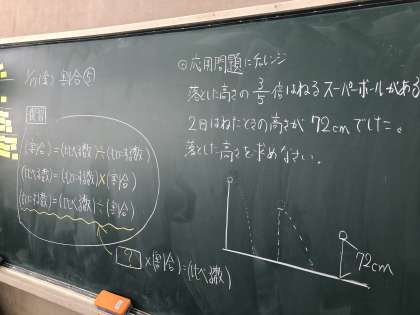 割合⑤
復習
(割合)=(比べる数)÷(もとにする数)
(比べる数)=(もとにする数)×(割合)
(もとにする数)=(比べる数)÷(割合)
? ×(割合)=(比べる数)
⊙応用問題にチャレンジ
落とした高さの3/5倍はねるスーパーボールがある
2回はねたときの高さが 72cmでした。
落とした高さを求めなさい。
72cm